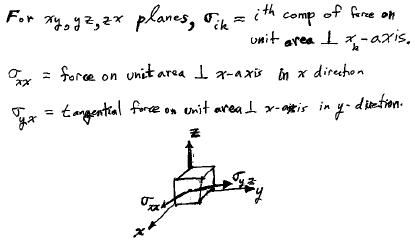 For xy, yz, zx planes, σik = ith comp of force on
unit area ⊥ xk-axis.
σxx = force on unit area ⊥ x-axis in x direction
σyx = tangential force on unit area ⊥ x-axis in y-direction.
z
σxx
σyz
y
x